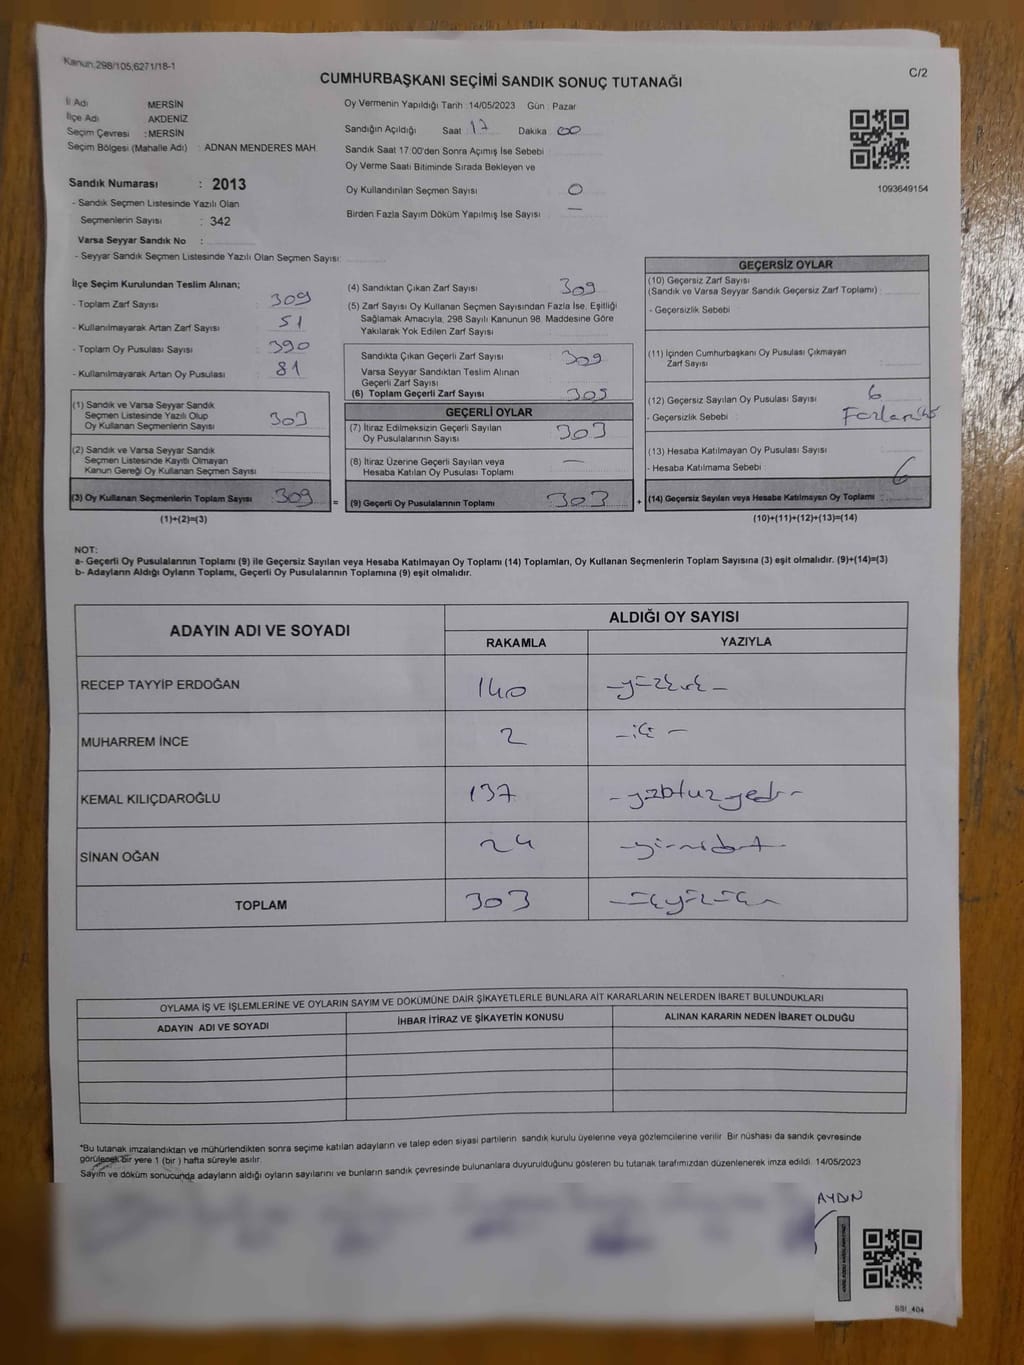 Kanun.298/105,6271/18-1
C/2
CUMHURBAŞKANI SEÇİMİ SANDIK SONUÇ TUTANAĞI
İl Adı MERSİN
İlçe Adı AKDENİZ
Seçim Çevresi : MERSİN
Seçim Bölgesi (Mahalle Adı) : ADNAN MENDERES MAH.
Sandık Numarası : 2013
- Sandık Seçmen Listesinde Yazılı Olan
Seçmenlerin Sayısı : 342
Varsa Seyyar Sandık No :
- Seyyar Sandık Seçmen Listesinde Yazılı Olan Seçmen Sayısı:
Oy Vermenin Yapıldığı Tarih : 14/05/2023 Gün : Pazar
Sandığın Açıldığı Saat : 17 Dakika : 00
Sandık Saat 17:00'den Sonra Açımış İse Sebebi :
Oy Verme Saati Bitiminde Sırada Bekleyen ve
Oy Kullandırılan Seçmen Sayısı : 0
Birden Fazla Sayım Döküm Yapılmış İse Sayısı : —
1093649154
İlçe Seçim Kurulundan Teslim Alınan;
- Toplam Zarf Sayısı : 309
- Kullanılmayarak Artan Zarf Sayısı : 51
- Toplam Oy Pusulası Sayısı : 390
- Kullanılmayarak Artan Oy Pusulası : 81
(1) Sandık ve Varsa Seyyar Sandık
Seçmen Listesinde Yazılı Olup
Oy Kullanan Seçmenlerin Sayısı : 303
(2) Sandık ve Varsa Seyyar Sandık
Seçmen Listesinde Kayıtlı Olmayan
Kanun Gereği Oy Kullanan Seçmen Sayısı :
(3) Oy Kullanan Seçmenlerin Toplam Sayısı : 309
(1)+(2)=(3)
(4) Sandıktan Çıkan Zarf Sayısı : 309
(5) Zarf Sayısı Oy Kullanan Seçmen Sayısından Fazla İse, Eşitliği
Sağlamak Amacıyla, 298 Sayılı Kanunun 98. Maddesine Göre
Yakılarak Yok Edilen Zarf Sayısı :
Sandıkta Çıkan Geçerli Zarf Sayısı : 309
Varsa Seyyar Sandıktan Teslim Alınan
Geçerli Zarf Sayısı :
(6) Toplam Geçerli Zarf Sayısı : 309
GEÇERLİ OYLAR
(7) İtiraz Edilmeksizin Geçerli Sayılan
Oy Pusulalarının Sayısı : 303
(8) İtiraz Üzerine Geçerli Sayılan veya
Hesaba Katılan Oy Pusulası Toplamı : —
=
(9) Geçerli Oy Pusulalarının Toplamı : 303
+
GEÇERSİZ OYLAR
(10) Geçersiz Zarf Sayısı
(Sandık ve Varsa Seyyar Sandık Geçersiz Zarf Toplamı) :
- Geçersizlik Sebebi :
(11) İçinden Cumhurbaşkanı Oy Pusulası Çıkmayan
Zarf Sayısı :
(12) Geçersiz Sayılan Oy Pusulası Sayısı : 6
- Geçersizlik Sebebi :
(13) Hesaba Katılmayan Oy Pusulası Sayısı :
- Hesaba Katılmama Sebebi :
(14) Geçersiz Sayılan veya Hesaba Katılmayan Oy Toplamı : 6
(10)+(11)+(12)+(13)=(14)
NOT:
a- Geçerli Oy Pusulalarının Toplamı (9) ile Geçersiz Sayılan veya Hesaba Katılmayan Oy Toplamı (14) Toplamları, Oy Kullanan Seçmenlerin Toplam Sayısına (3) eşit olmalıdır. (9)+(14)=(3)
b- Adayların Aldığı Oyların Toplamı, Geçerli Oy Pusulalarının Toplamına (9) eşit olmalıdır.
ADAYIN ADI VE SOYADI ALDIĞI OY SAYISI
RAKAMLA YAZIYLA
RECEP TAYYİP ERDOĞAN 140 -yüzkırk-
MUHARREM İNCE 2 -iki-
KEMAL KILIÇDAROĞLU 137 -yüzotuzyedi-
SİNAN OĞAN 24 -yirmidört-
TOPLAM 303 -üçyüzüç-
OYLAMA İŞ VE İŞLEMLERİNE VE OYLARIN SAYIM VE DÖKÜMÜNE DAİR ŞİKAYETLERLE BUNLARA AİT KARARLARIN NELERDEN İBARET BULUNDUKLARI
ADAYIN ADI VE SOYADI İHBAR İTİRAZ VE ŞİKAYETİN KONUSU ALINAN KARARIN NEDEN İBARET OLDUĞU
*Bu tutanak imzalandıktan ve mühürlendikten sonra seçime katılan adayların ve talep eden siyasi partilerin sandık kurulu üyelerine veya gözlemcilerine verilir. Bir nüshası da sandık çevresinde
görülecek bir yere 1 (bir ) hafta süreyle asılır.
Sayım ve döküm sonucunda adayların aldığı oyların sayılarını ve bunların sandık çevresinde bulunanlara duyurulduğunu gösteren bu tutanak tarafımızdan düzenlenerek imza edildi. 14/05/2023
AYDIN
SSI_404